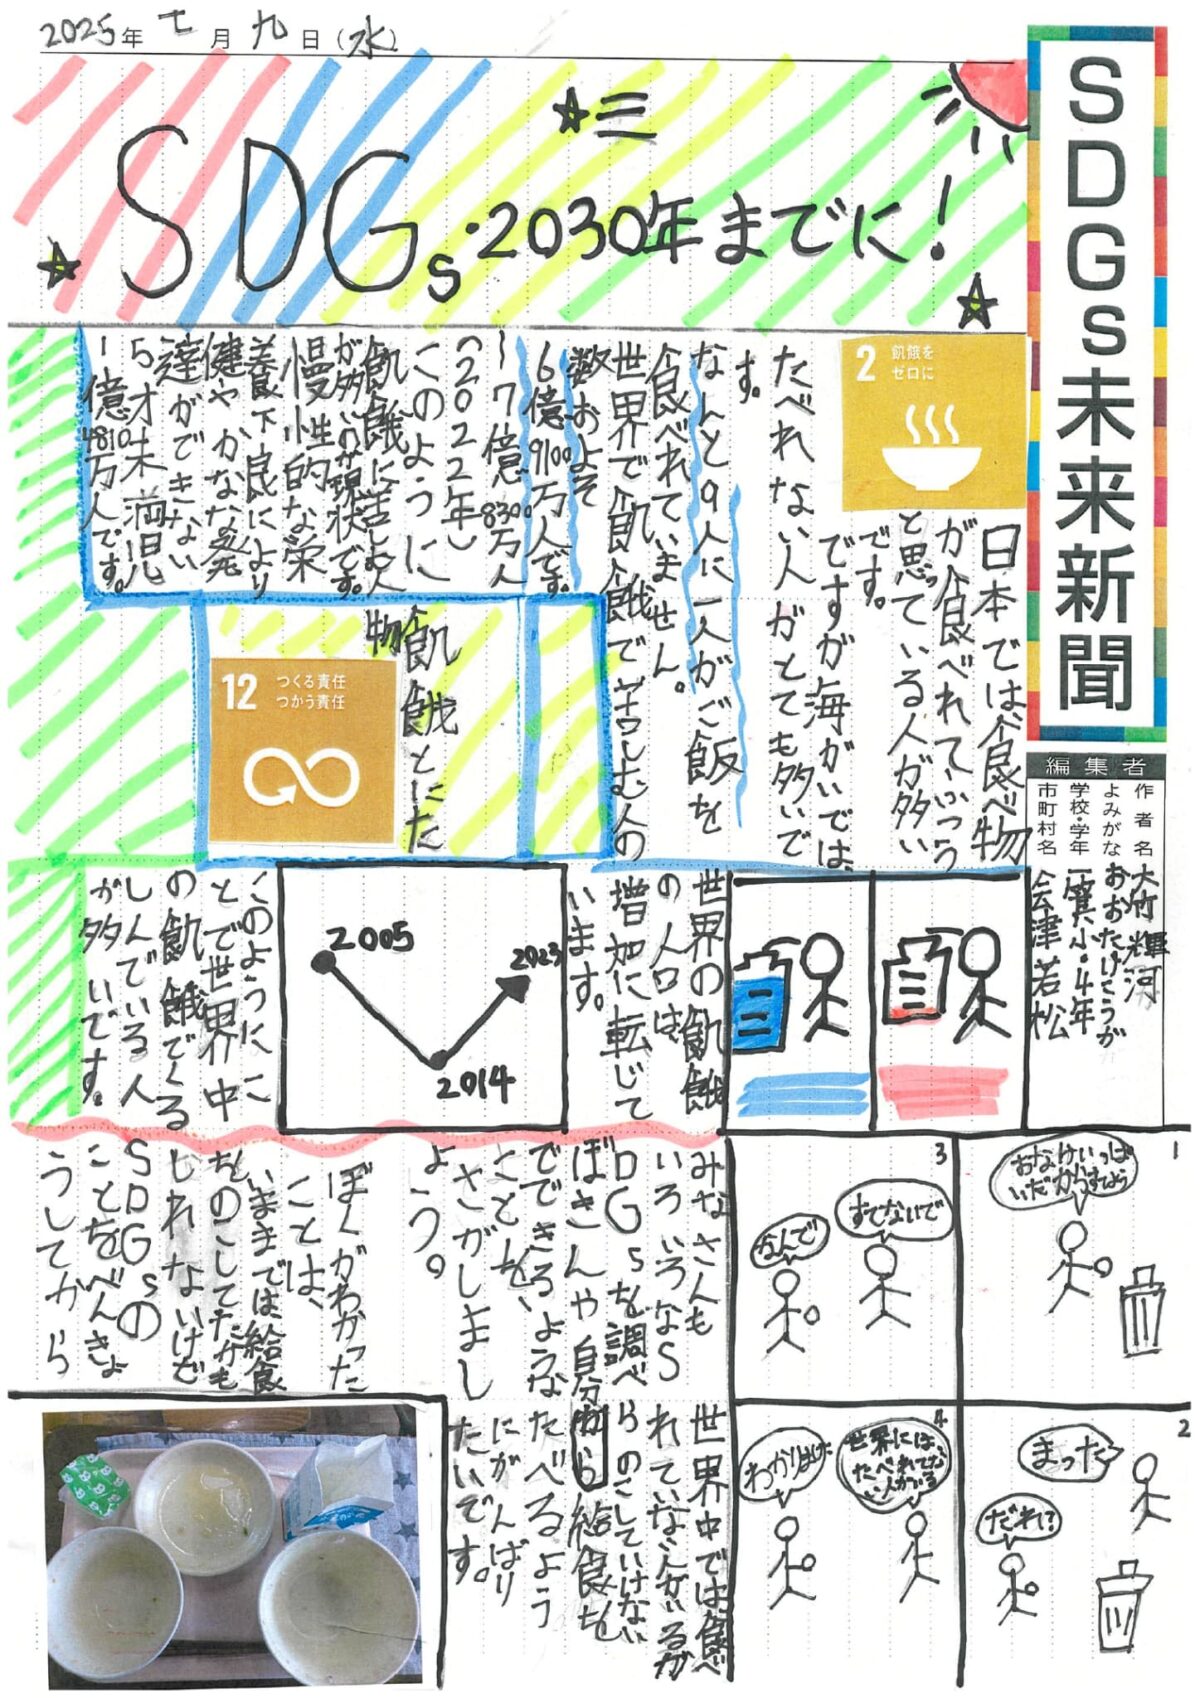 2025年七月九日(水)
SDGs未来新聞
SDGs・2030年までに!
編集者
作者名 大竹輝河
よみがな おおたけこうが
学校・学年 一箕小。4年
市町村名 会津若松
2 飢餓を
ゼロに
日本では食べ物
が食べれていつう
と思っている人が多い
です。
ですが海がいでは、
たべれない人がとても多いで
す。
なんと9人に一人がご飯を
食べれていません。
世界で飢餓で苦しむ人の
数およそ
6億9100万人です。
~7億8300万人
(2022年)
このように
飢餓に苦しむ人
が多いのが現状です。
慢性的な栄
養不良により
健やかなな発
達ができない
5才未満児
1億4810万人です。
飢餓とにた
物
12 つくる責任
つかう責任
世界の飢餓
の人口は
増加に転じて
います。
2005
2014
2023
このようにこ
とで世界中
の飢餓でくる
しんでいる人
が多いです。
みなさんも
いろいろなS
DGsを調べ
ぼきんや自分
でできるような
ことを、
さがしまし
ょう。
ぼくがわかった
ことは、
いままでは、給食
をのこしてたかも
しれないけど
SDGsの
ことをべんきょ
うしてから
世界中では、食べ
れていない人がいるか
らのこしていけない
から給食を
たべるよう
にがんばり
たいです。
1
おなけいっぱ
いだからすてよう
2
まった
だれ?
3
すてないで
なんで
4
世界には、
たべれてな
い人がいる
わかりました